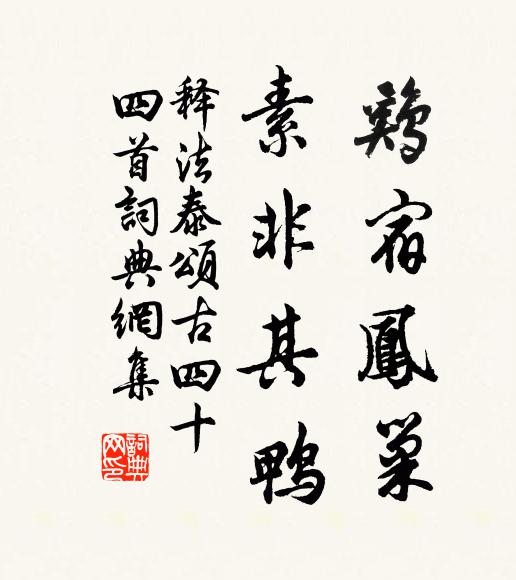 鷄宿鳳巢
素非其鴨
释法泰頌古四十
四首詞典網集
詞典
网印